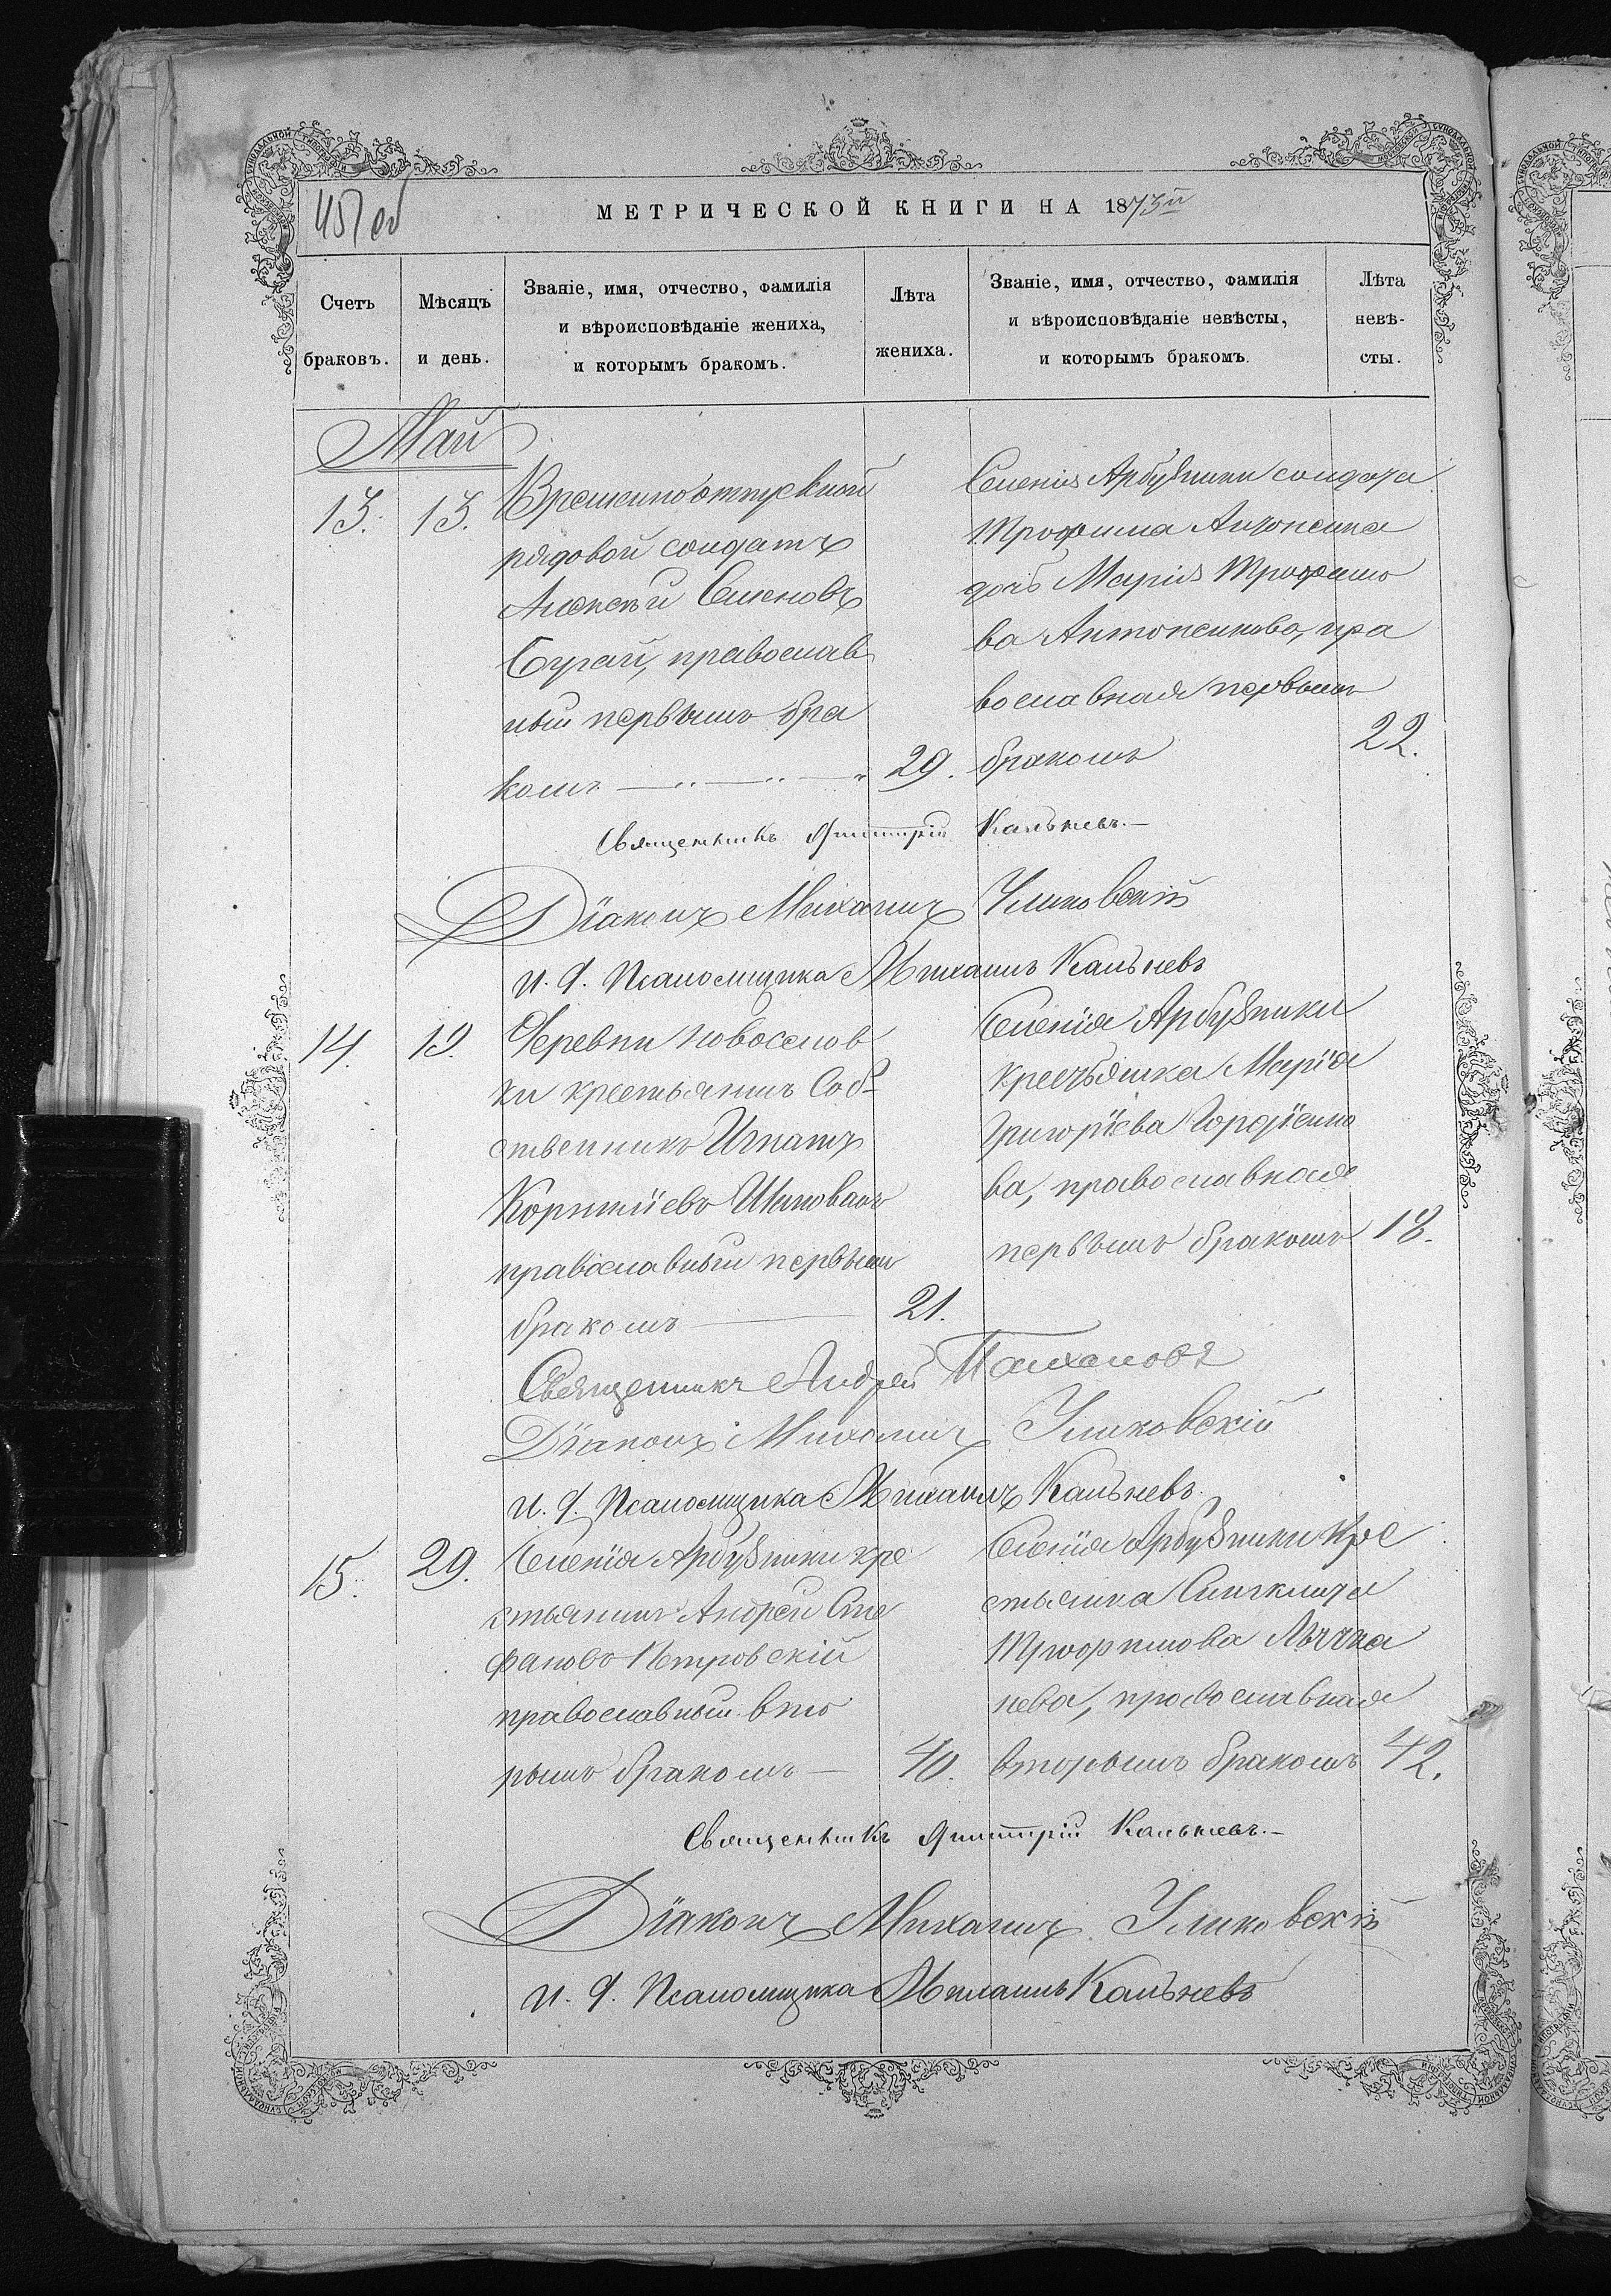 457 об
МЕТРИЧЕСКОЙ КНИГИ НА 1873й
Счетъ браковъ.
Мѣсяцъ и день.
Званіе, имя, отчество, фамилія
и вѣроисповѣданіе жениха,
и которымъ бракомъ.
Лѣта жениха.
Званіе, имя, отчество, фамилія
и вѣроисповѣданіе невѣсты,
и которымъ бракомъ.
Лѣта невѣ-
сты.
Май
13. 13.
Временноотпускной
рядовой солдатъ
Алексѣй Семеновъ
Бурай, православ
ный первымъ бра
комъ 29.
Селенія Арбузинки солдата
Трофима Антоненка
дочь Марія Трофимо
ва Антоненкова, пра
вославная первымъ
бракомъ 22.
Священникъ Димитрій Кальневъ.
Діаконъ Михаилъ Уликовскій
и. д. Псаломщика Михаилъ Кальневъ
14. 19.
Деревни Новоселов
ки крестьянинъ Соб-
ственникъ Игнатъ
Корнилiевъ
православный первымъ
бракомъ 21.
Селенія Арбузинки
крестьянка Марія
Григоріева Гордіенко
ва, православная
первымъ бракомъ 18.
Священникъ Андрей
Діаконъ Михаилъ Уликовскій
и. д. Псаломщика Михаилъ Кальневъ.
15. 29.
Селенія Арбузинки кре
стьянинъ Андрей Сте
фановъ Петровскій
православный вто
рымъ бракомъ 40.
Селенія Арбузинки кре
стьянка
Трофимова
нева, православная
вторымъ бракомъ 42.
Священникъ Димитрій Кальневъ.
Діаконъ Михаилъ Уликовскій
и. д. Псаломщика Михаилъ Кальневъ